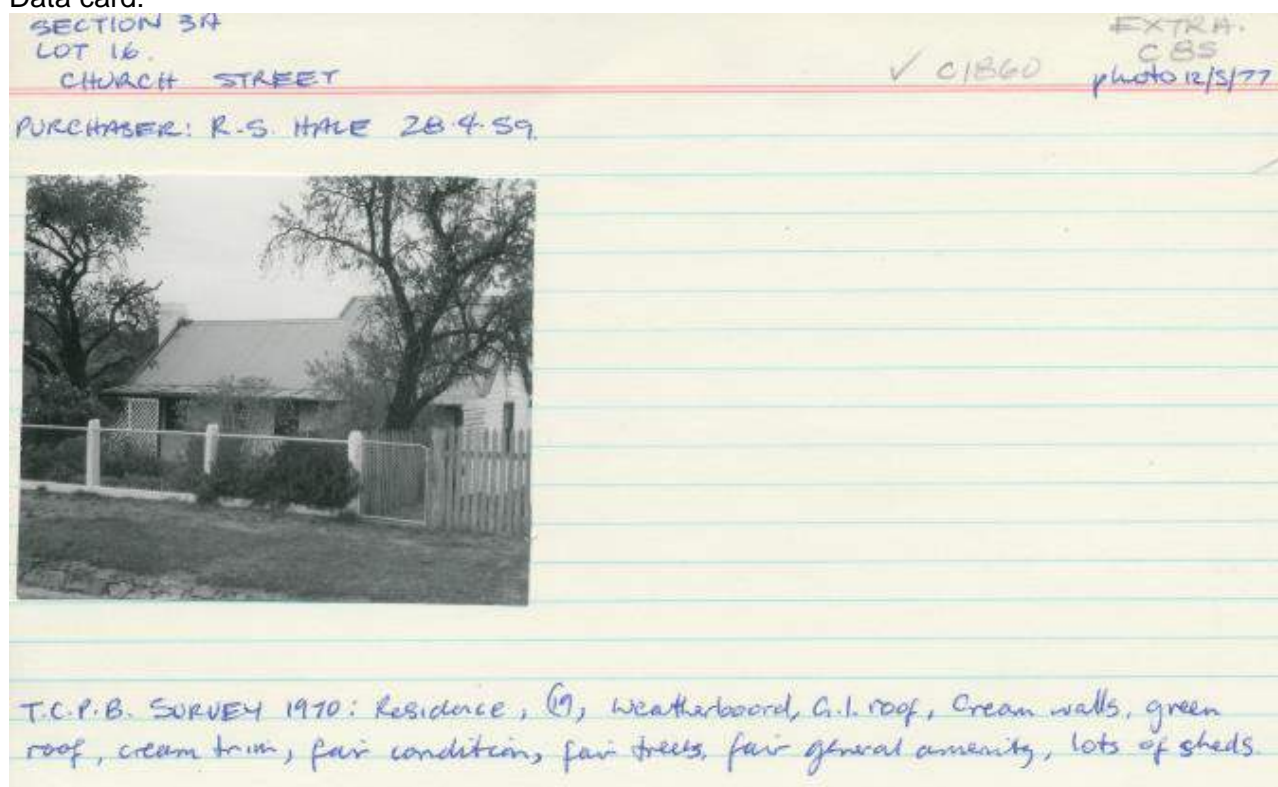 Data card:
SECTION 3A
LOT 16.
CHURCH STREET
✓ C1860
EXTRA.
CBS
photo 12/5/77
PURCHASER: R.S. HALE 28.4.59.
T.C.P.B. SURVEY 1970: Residence, (19), Weatherboord, G.I. roof, Cream walls, green
roof, cream trim, fair condition, fair trees, fair general amenity, lots of sheds